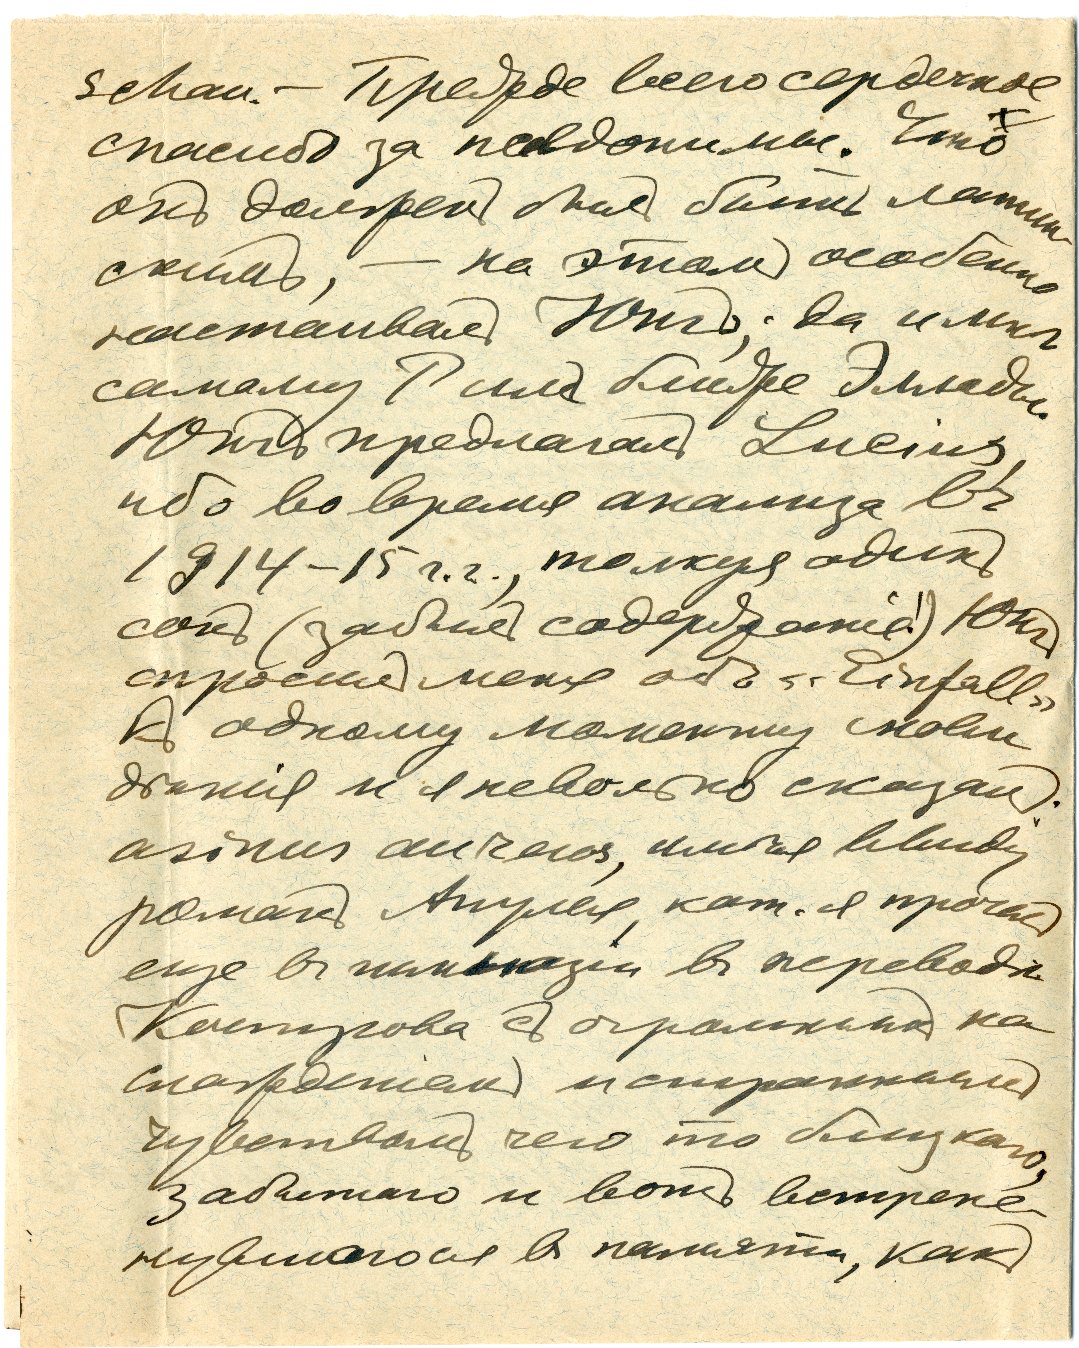 schau. — Прежде всего сердечное
спасибо за псевдонимы. Что
онъ долженъ былъ быть латин-
скимъ, — на этомъ особенно
настаивалъ Юнгъ; да и мнѣ
самому Римъ ближе Эллады.
Юнгъ предлагалъ Lucius,
ибо во время анализа въ
1914–15 г.г., толкуя одинъ
сонъ (забылъ содержаніе!) Юнгъ
спросилъ меня объ «Einfall»
къ одному моменту снови-
дѣнія и я невольно сказалъ:
asinus aureus, имѣя ввиду
романъ Апулея, кот. я прочелъ
еще въ гимназіи въ переводѣ
Костурова съ огромнымъ на-
слажденіемъ и страннымъ
чувствомъ чего то близкаго,
забытаго и вотъ встрепе-
нувшагося въ памяти, какъ